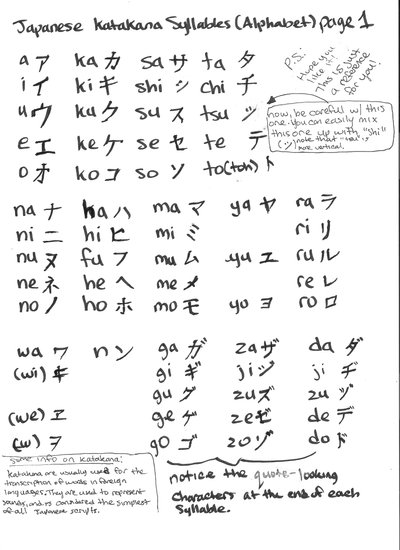 Japanese Katakana Syllables (Alphabet) page 1
a ア ka カ sa サ ta タ
i イ ki キ shi シ chi チ
u ウ ku ク su ス tsu ツ
e エ ke ケ se セ te テ
o オ ko コ so ソ to(toh) ト
P.S:
Hope you
like it!
This is just
a reference
for you!
now, be careful w/ this
one. You can easily mix
this one up with "shi"
(シ) note that "tsu" is
more vertical.
na ナ ha ハ ma マ ya ヤ ra ラ
ni ニ hi ヒ mi ミ ri リ
nu ヌ fu フ mu ム yu ユ ru ル
ne ネ he ヘ me メ re レ
no ノ ho ホ mo モ yo ヨ ro ロ
wa ワ n ン ga ガ za ザ da ダ
(wi) ヰ gi ギ ji ジ ji ヂ
gu グ zu ズ zu ヅ
(we) ヱ ge ゲ ze ゼ de デ
(w) ヲ go ゴ zo ゾ do ド
some info on katakana:
katakana are usually used for the
transcription of words in foreign
languages. They are used to represent
sounds, and is considered the simplest
of all Japanese scripts.
notice the quote-looking
characters at the end of each
syllable.